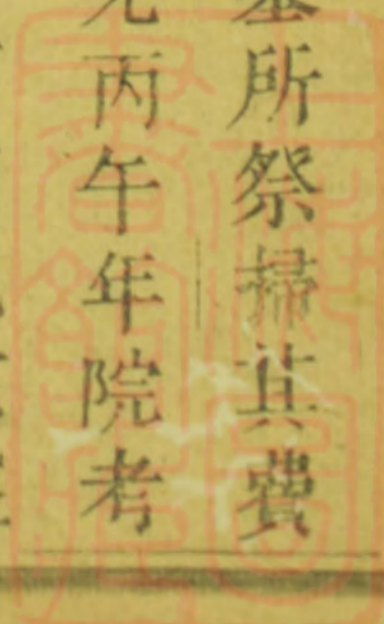 所祭掃其費
丙午年院考